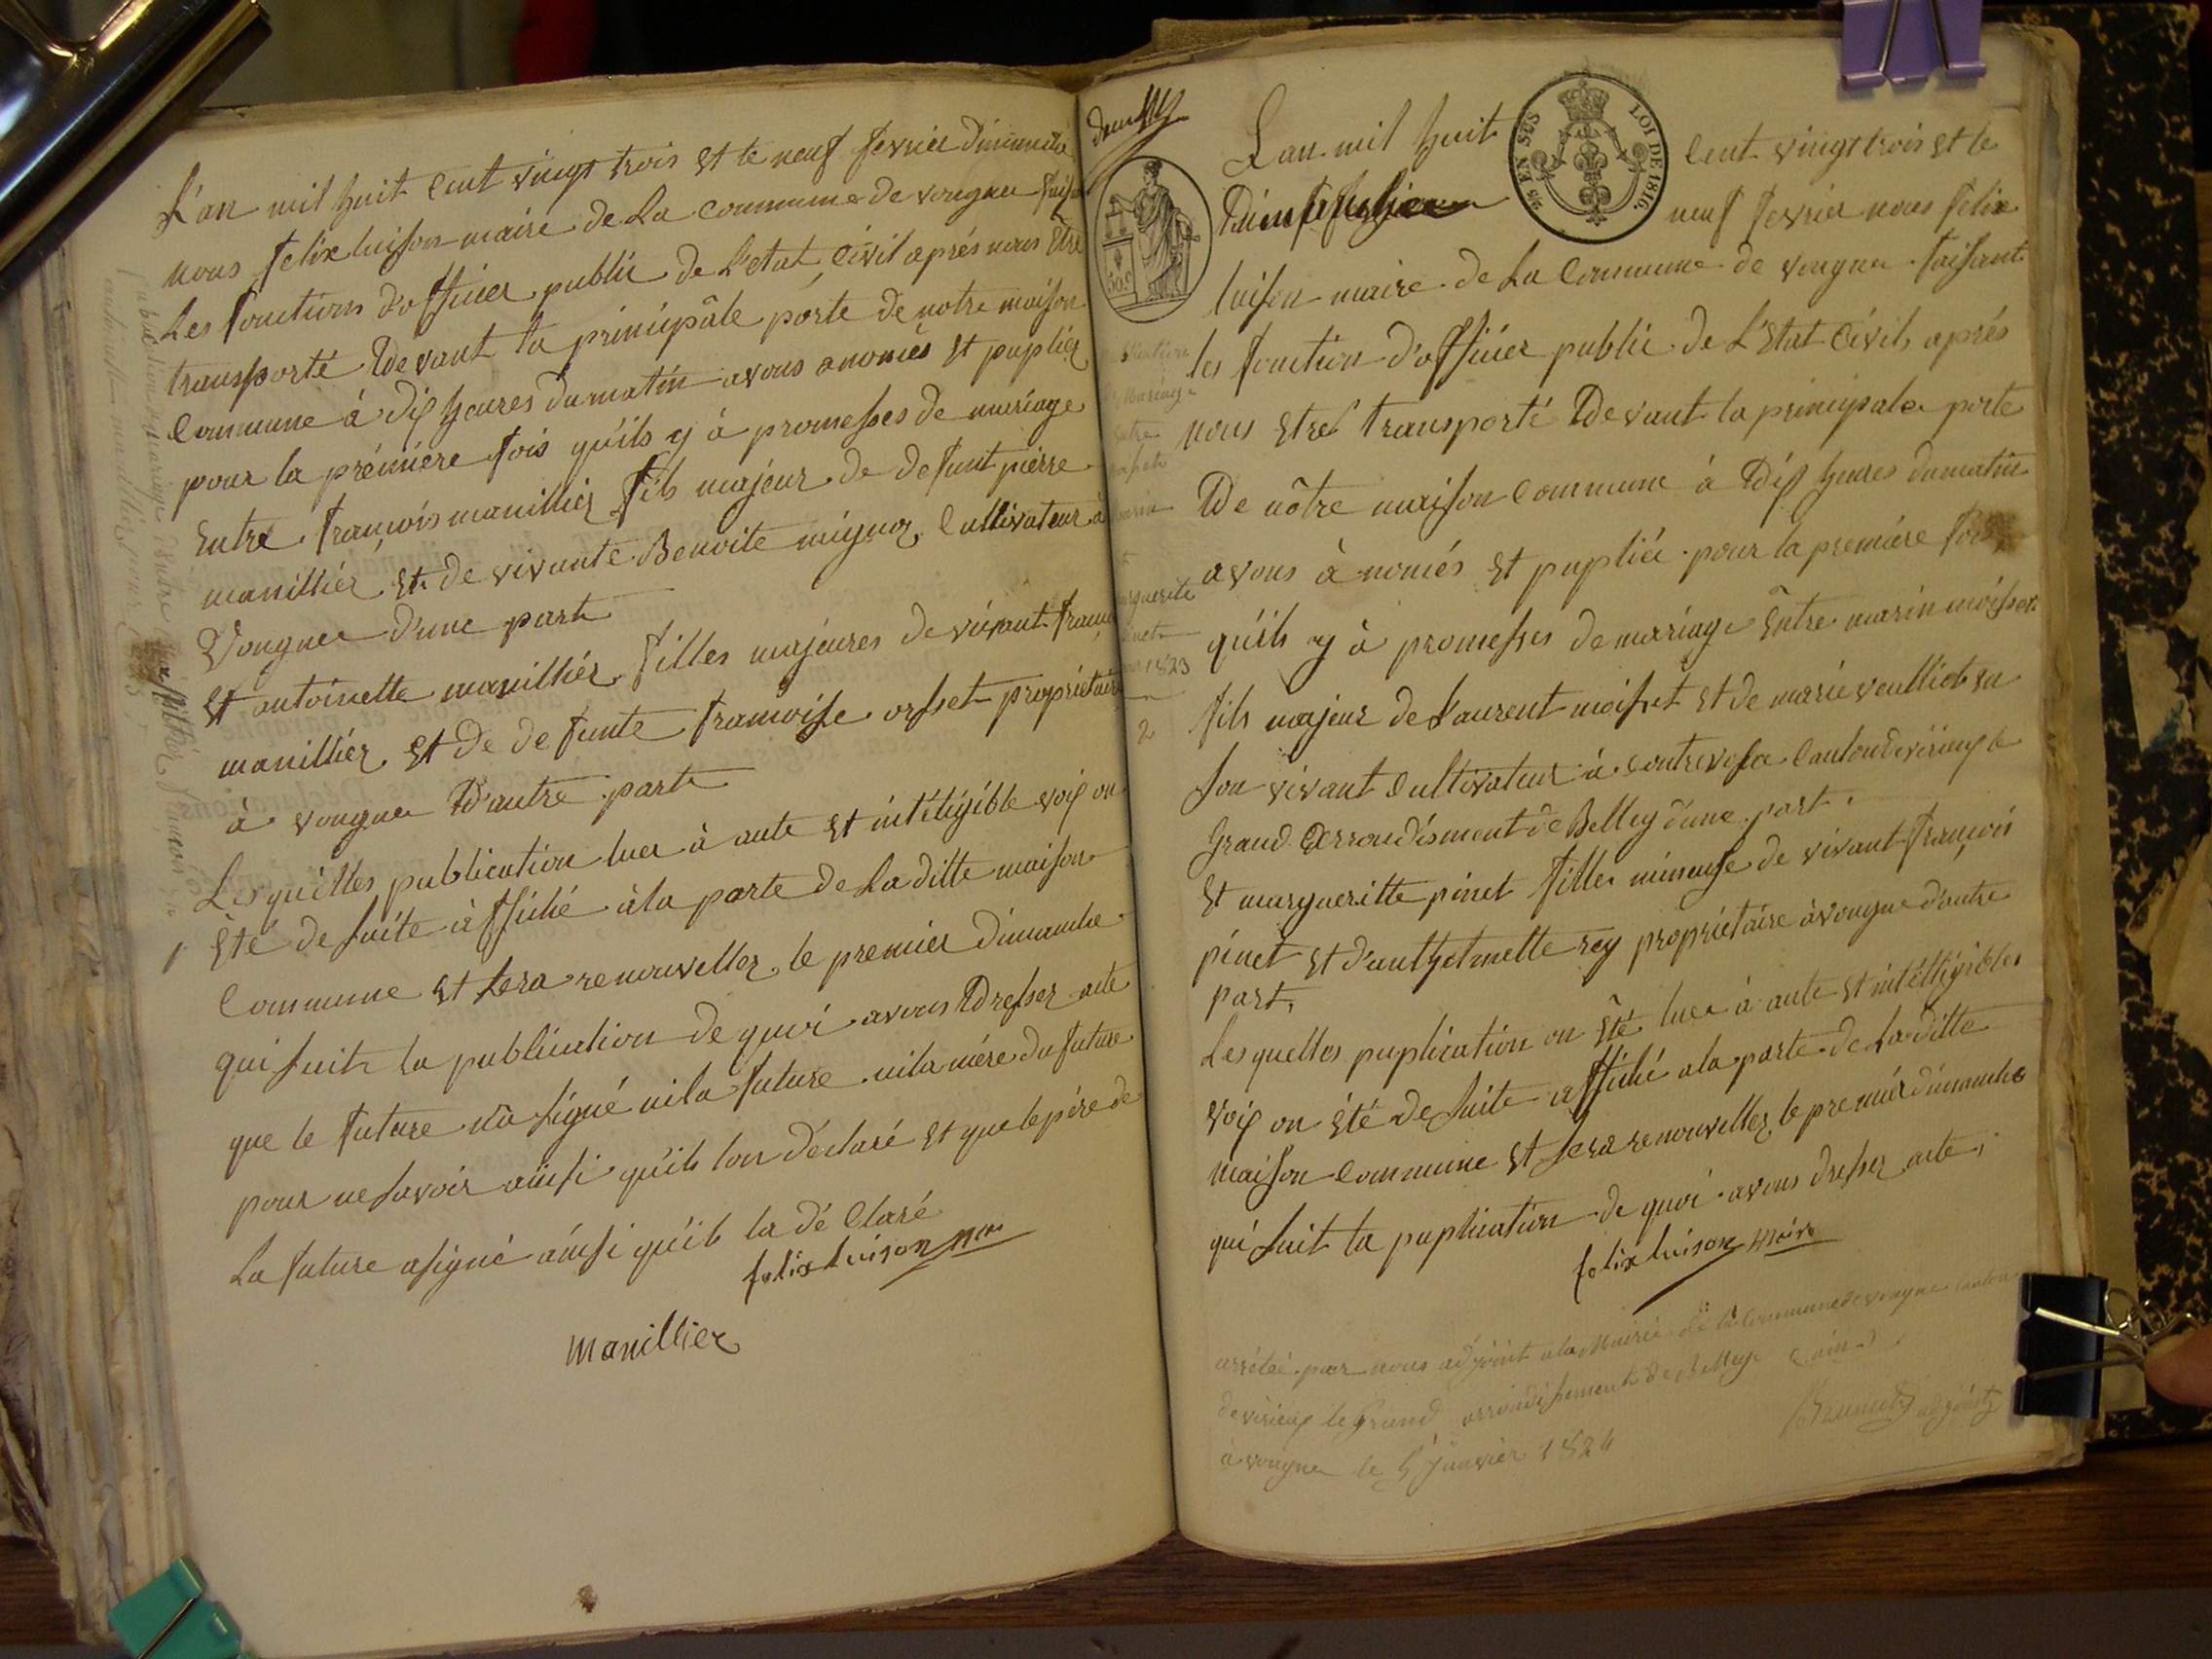 L'an mil huit Cent vingt trois et le neuf fevrier dimanche
nous felix luison maire de La Commune de vongne faisant
Les fonctions d'officier public de L'etat Civil aprés nous être
transporté devant la principâle porte de notre maison
Commune à dix heures du matin avons anoncés et pupliér
pour la première fois qu'ils y à promesses de mariage
Entre françois manillier fils majeur de defunt pièrre
manillier Et de vivante Benoite mignoz Cultivateur à
Vongne d'une part
Et antoinette manillier filles majeures de vivant
manillier et de defunte francoise orsset propriétaire
à vongne d'autre part
Lesquèlles publication lues à aute et intéligible voix on
été de suite àffiché à la porte de La ditte maison
Commune et sera renouveller le premier dimanche
qui suit la publication de quoi avons dresser acte
que le future n'a signé ni la future ni la mére du future
pour ne savoir ainsi qu'ils lon déclaré et que le pére de
La future a signé ainsi qu'il la dé Claré
felix luison
manillier
1
L'an mil huit Cent vingt trois et le
neuf fevrier nous felix
EN SUS
LOI DE 1816.
50 c
luison maire de La Commune de vongne faisant
les fonction d'officier public de L'Etat Civil, aprés
nous etre transporté devant la principale porte
De nôtre maison Commune à dix heures du matin
avons à noncés et pupliée pour la premiére fois
qu'ils y à promesses de mariage Entre marin moisset
fils majeur de Laurent moisset et de marie veulliet en
Son vivant Cultivateur à Contrevose Canton de virieux le
grand arrondisment de Belley d'une part.
Et margueritte pinet fille mineuse de vivant françois
pinet et d'anthelmette rey propriétaire à vongne d'autre
part,
Lesquelles puplication on été lues à aute et intélligibles
voix on été de suite affiché a la porte de La ditte
maison Commune et sera renouveller le premiér dimanche
qui suit la puplication de quoi avons dresser acte,
felix luison maire
arrêtée par nous adjoint a la Mairie de la Commune de vongne Canton
de virieux le Grand arrondissement de Belley (ain)
adjoint
a vongne le 5 Janvier 1824
Mariage
entre
1823
2